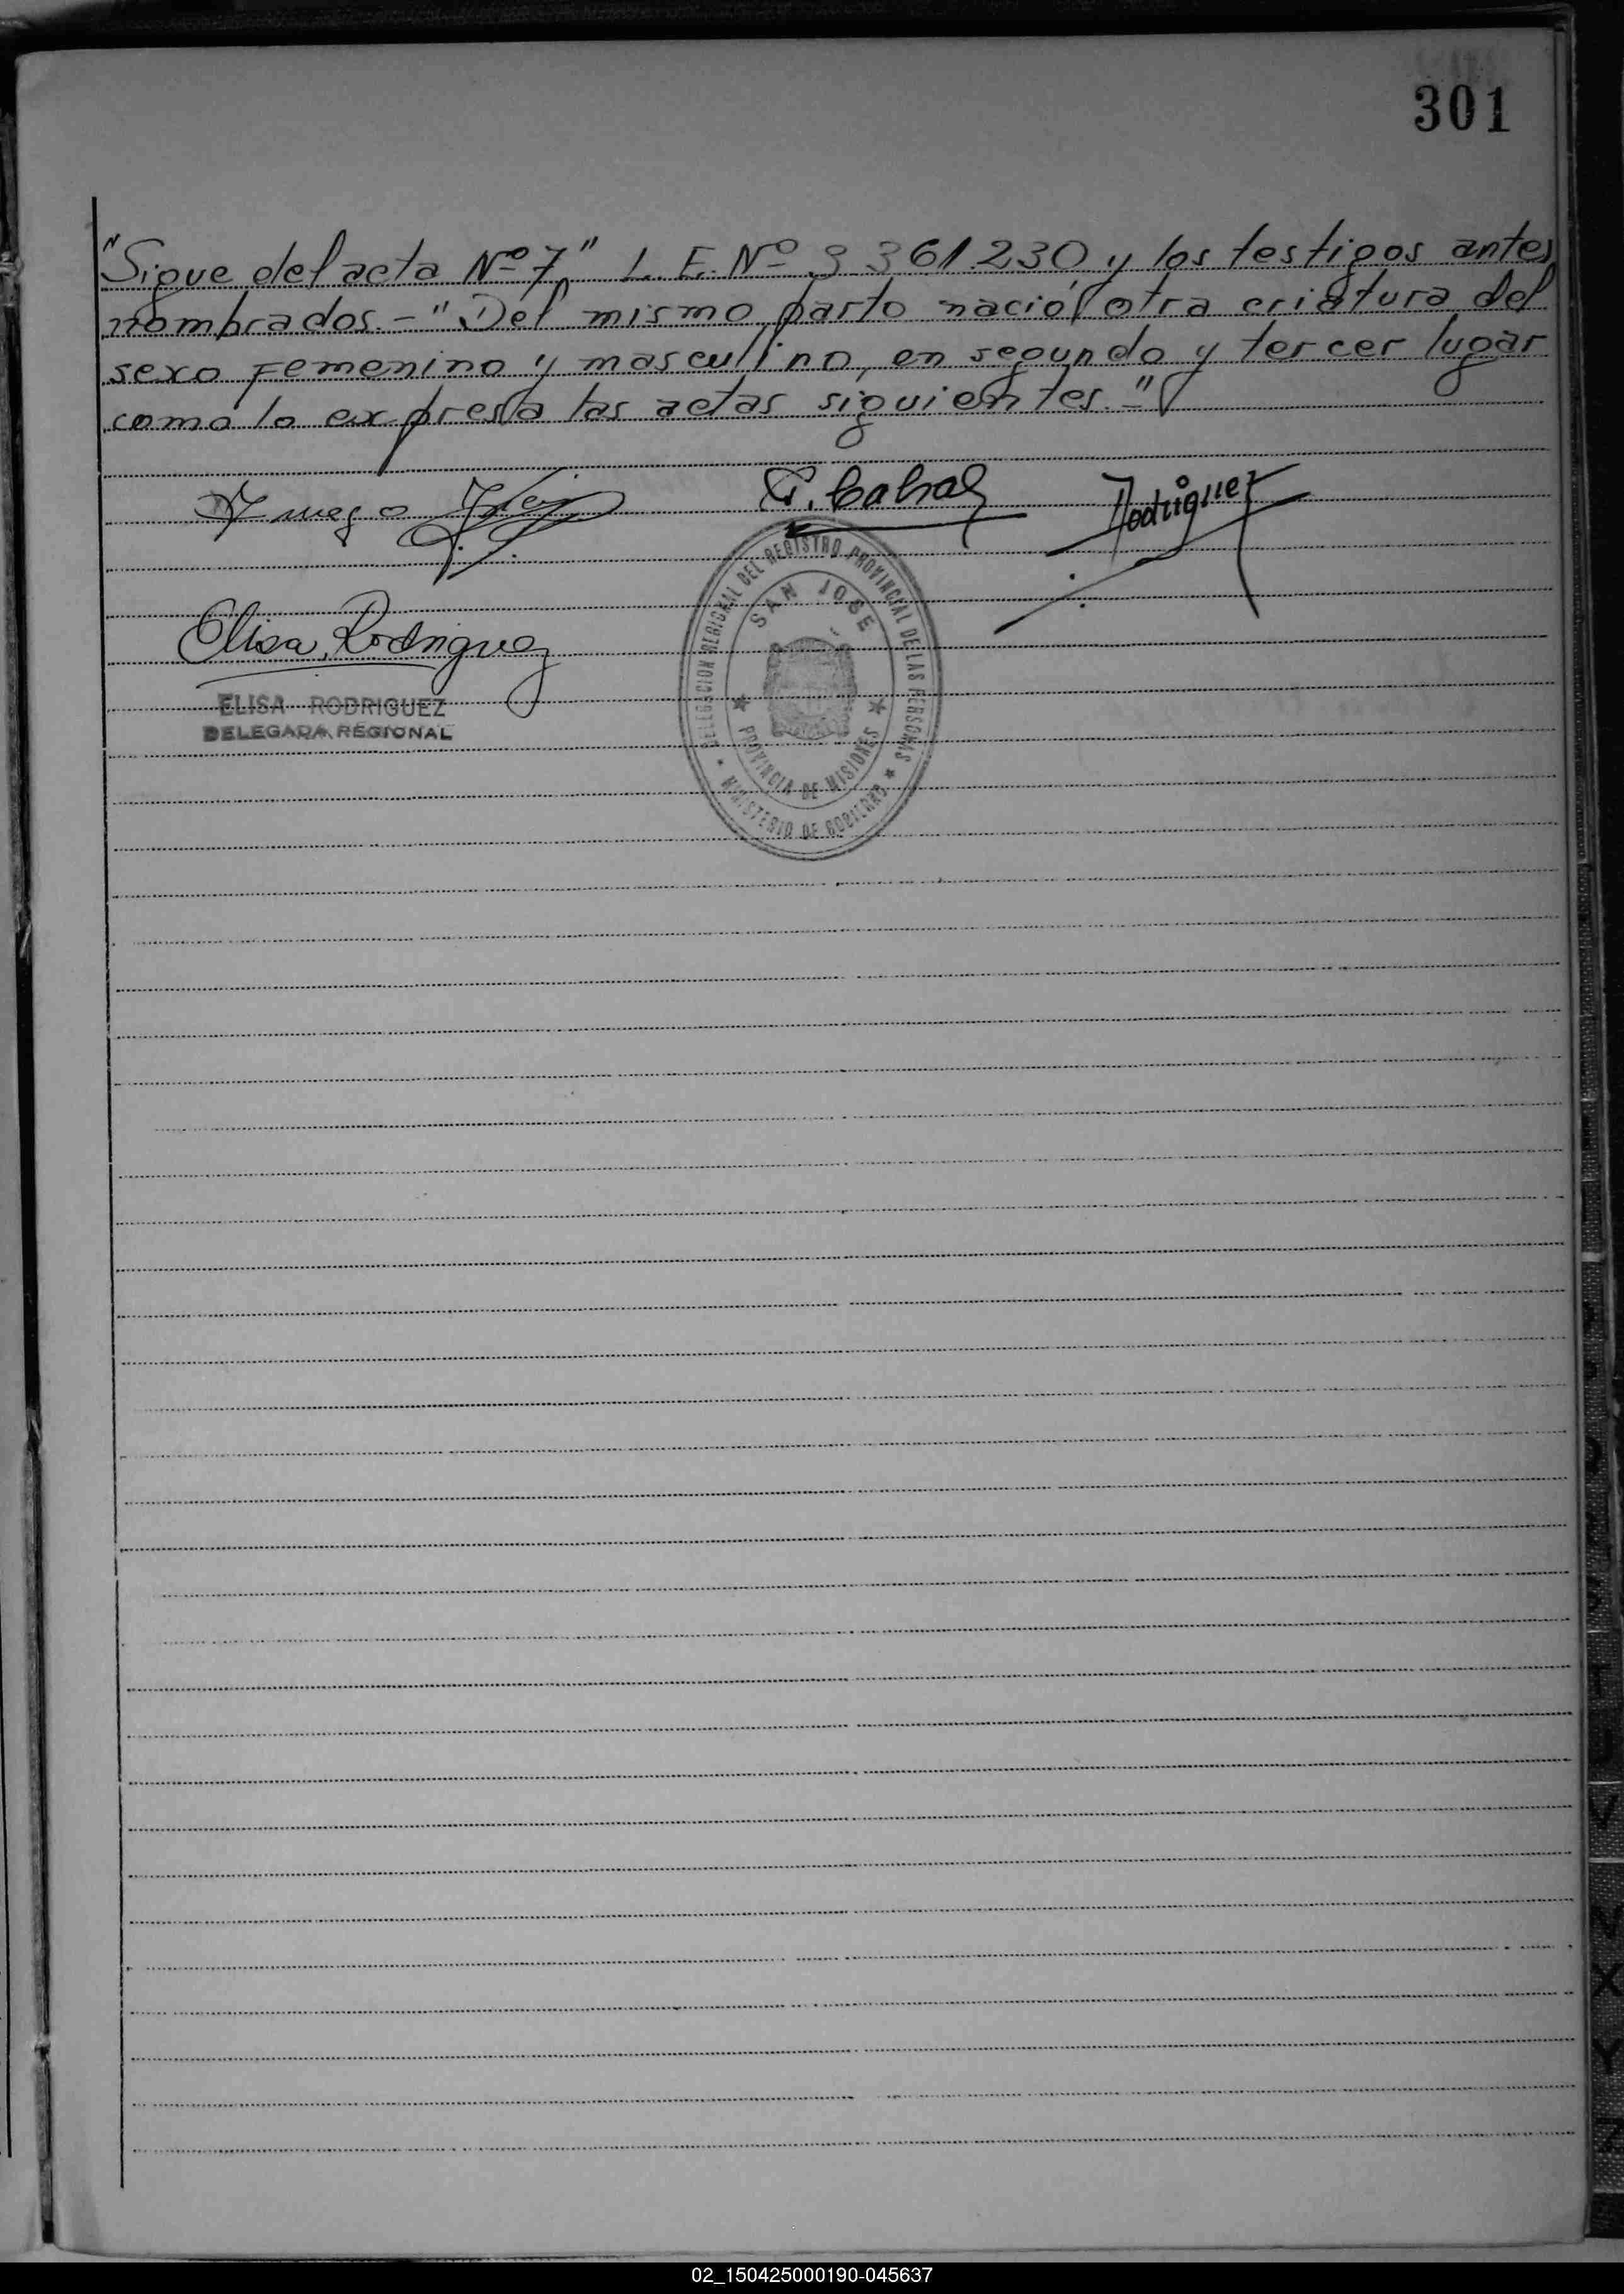 301
"Sigue del acta Nº 7" L. E. Nº 3 361.230, y los testigos antes
nombrados.- "Del mismo parto nació otra criatura del
sexo femenino y masculino, en segundo y tercer lugar
como lo expresa las actas siguientes."
C. Cabral
Rodriguez
Elisa Rodriguez
ELISA RODRIGUEZ
DELEGADA REGIONAL
DELEGACION REGIONAL DEL REGISTRO PROVINCIAL DE LAS PERSONAS
SAN JOSE
PROVINCIA DE MISIONES
* MINISTERIO DE GOBIERNO *
02_150425000190-045637